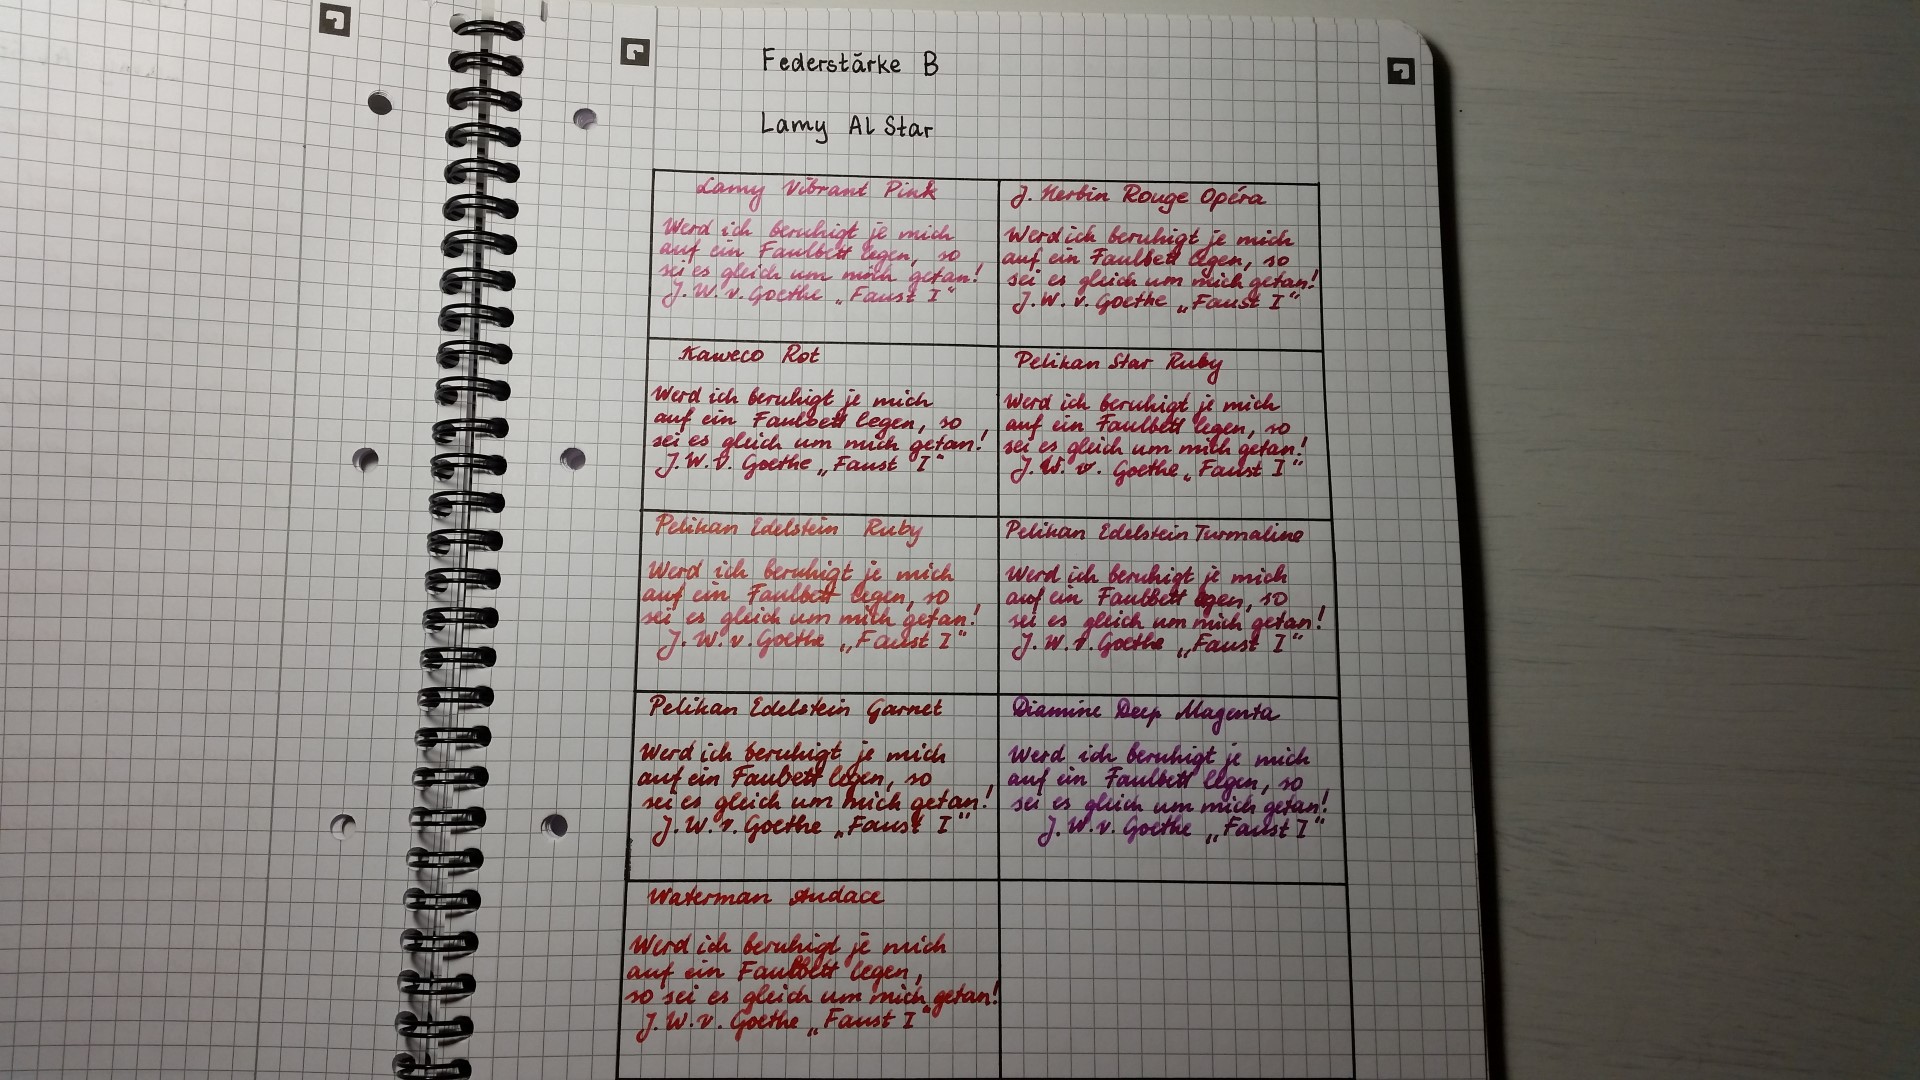 Federstärke B
Lamy AL Star
Lamy Vibrant Pink
Werd ich beruhigt je mich
auf ein Faulbett legen, so
sei es gleich um mich getan!
J. W. v. Goethe „Faust I“
J. Herbin Rouge Opéra
Werd ich beruhigt je mich
auf ein Faulbett legen, so
sei es gleich um mich getan!
J. W. v. Goethe „Faust I“
Kaweco Rot
Werd ich beruhigt je mich
auf ein Faulbett legen, so
sei es gleich um mich getan!
J. W. v. Goethe „Faust I“
Pelikan Star Ruby
Werd ich beruhigt je mich
auf ein Faulbett legen, so
sei es gleich um mich getan!
J. W. v. Goethe „Faust I“
Pelikan Edelstein Ruby
Werd ich beruhigt je mich
auf ein Faulbett legen, so
sei es gleich um mich getan!
J. W. v. Goethe „Faust I“
Pelikan Edelstein Turmaline
Werd ich beruhigt je mich
auf ein Faulbett legen, so
sei es gleich um mich getan!
J. W. v. Goethe „Faust I“
Pelikan Edelstein Garnet
Werd ich beruhigt je mich
auf ein Faulbett so
sei es gleich um mich getan!
J. W. v. Goethe „Faust I“
Diamine Deep Magenta
Werd ich beruhigt je mich
auf ein Faulbett legen, so
sei es gleich um mich getan!
J. W. v. Goethe „Faust I“
Waterman Audace
Werd ich beruhigt je mich
auf ein Faulbett legen,
so sei es gleich um mich getan!
J. W. v. Goethe „Faust I“